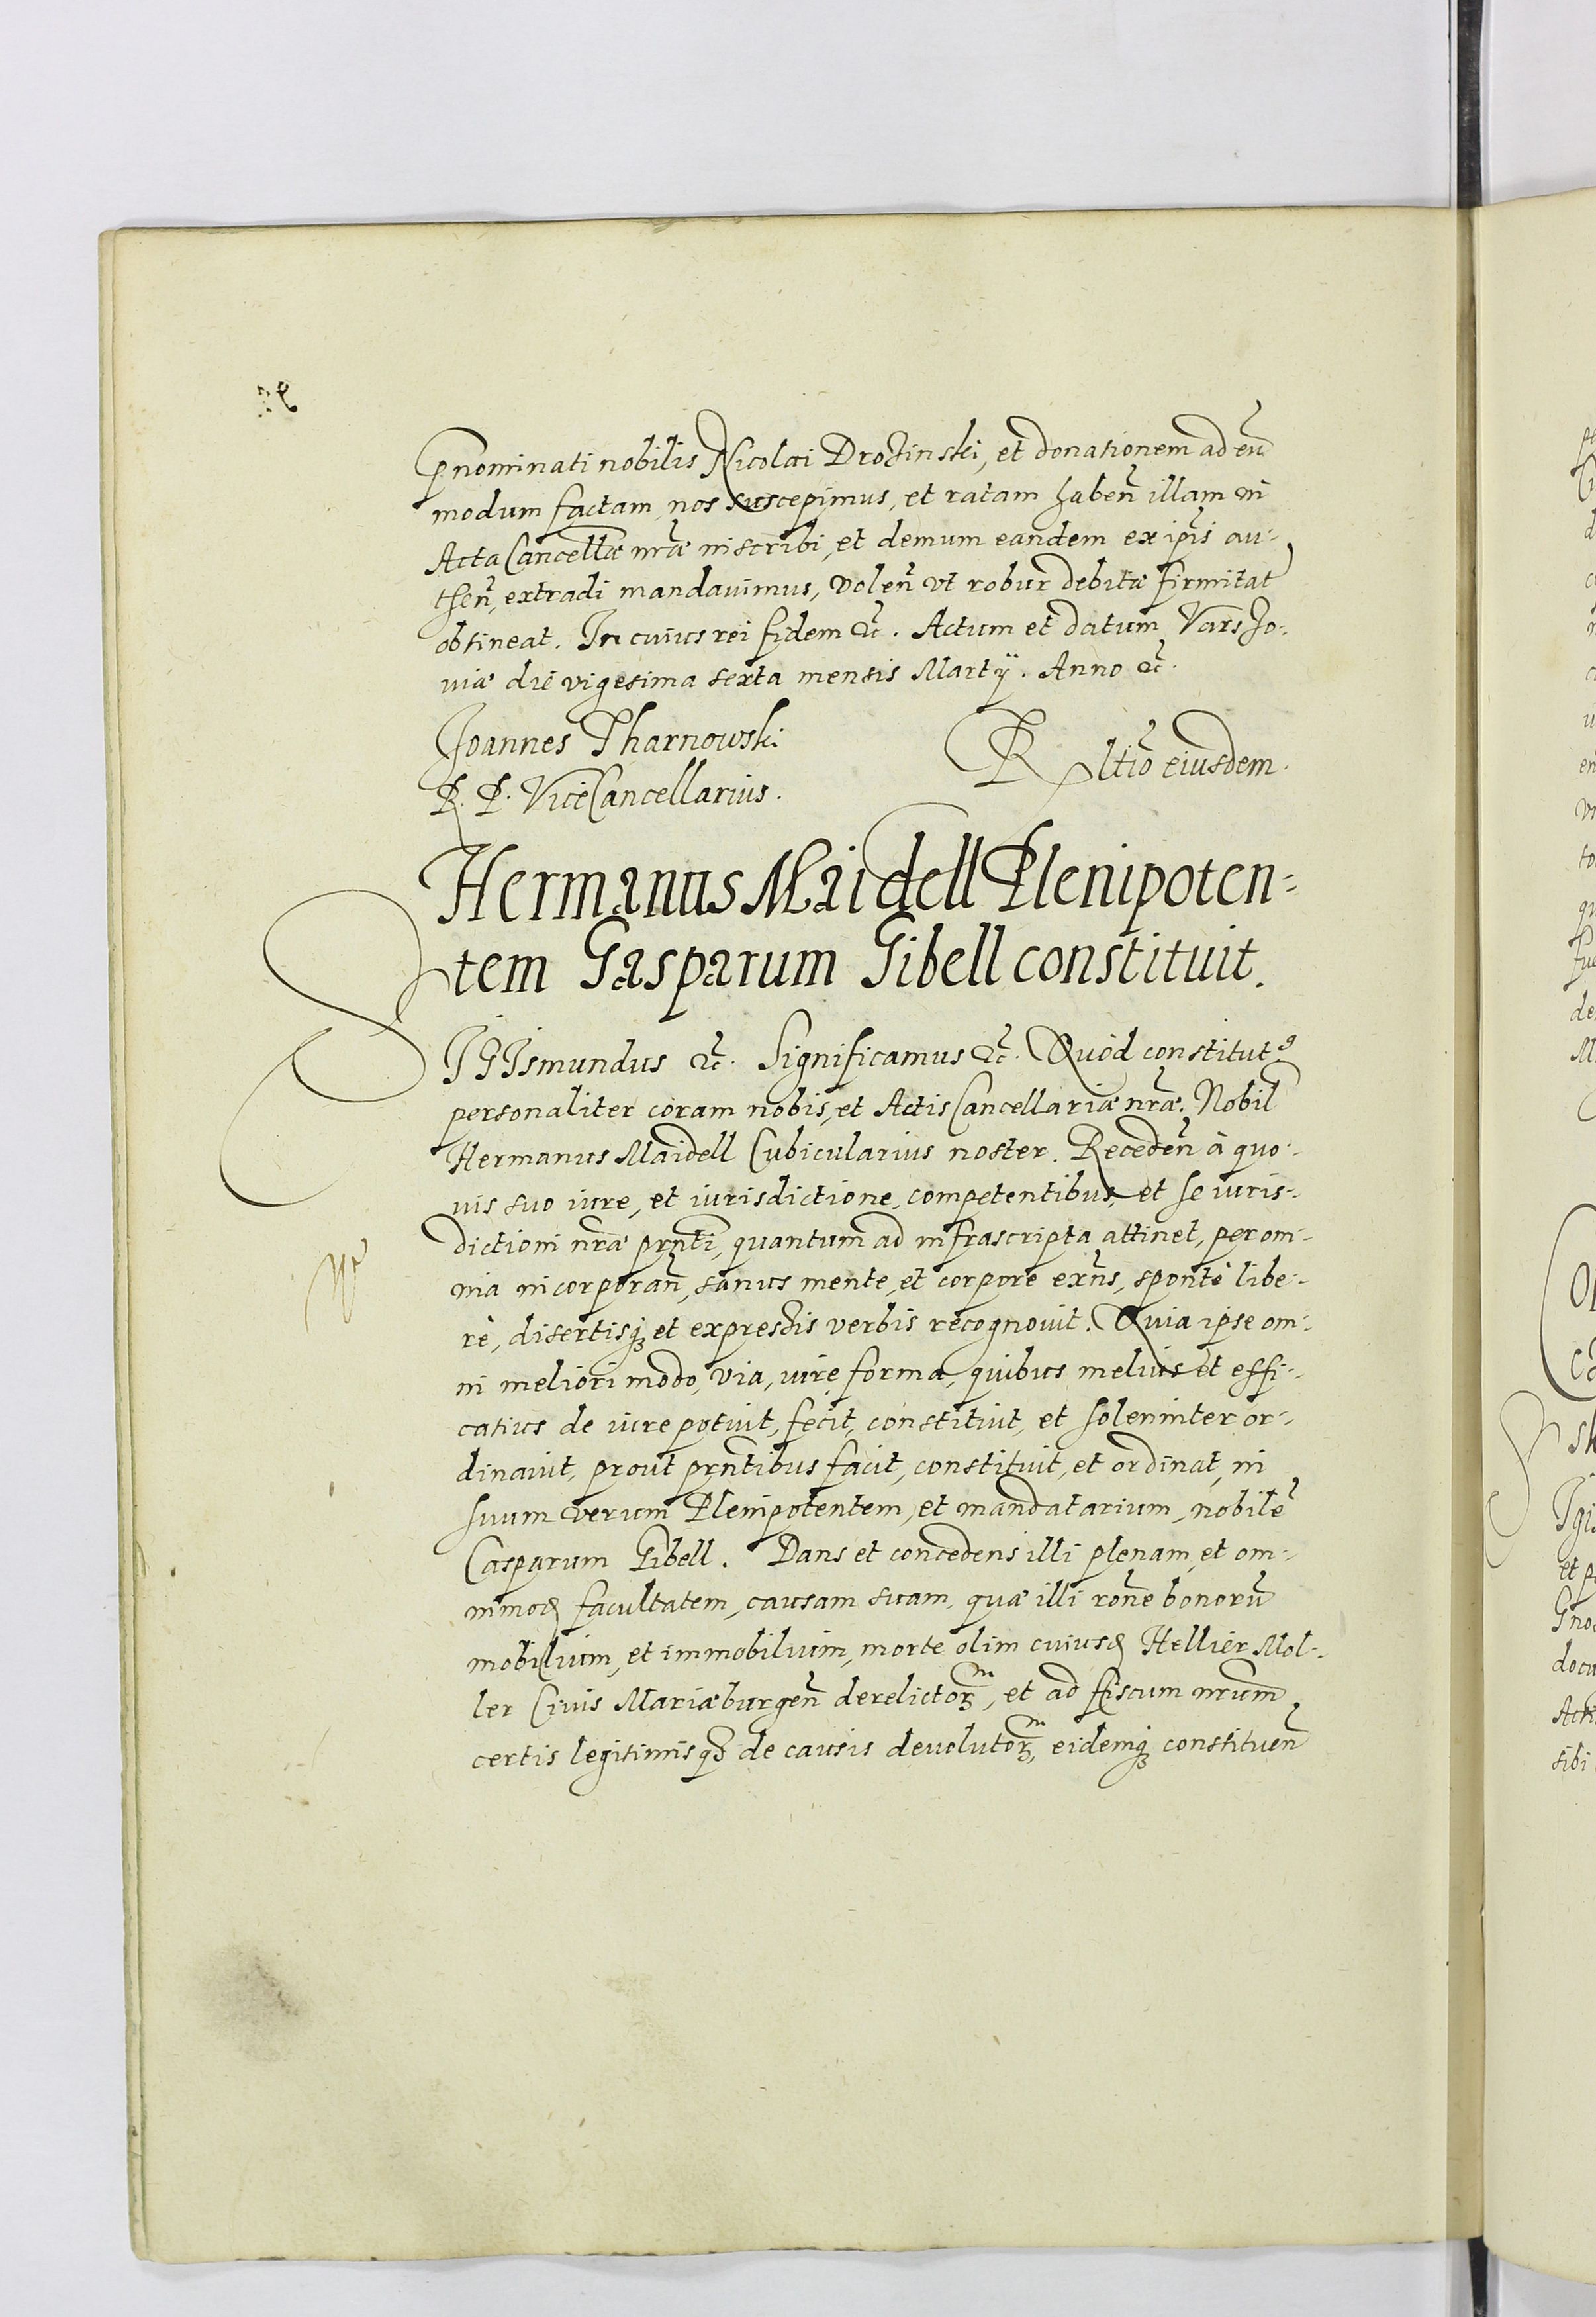 Pnominati nobilis Nicolai Drożinski, et donationem ad eū
modum factam, nos suscepimus, et ratam haben̄ illam in
Acta Cancellæ nr̄æ inscribi, et demum eandem ex ip̄is au-
then̄, extradi mandavimus, volen̄ vt robur debitæ firmitat̄
obtineat. In cuius rei fidem &c̄. Actum et datum Varsſo-
uiæ die vigesima sexta mensis Martÿ. Anno &c̄.
Joannes Tharnowski
R. P. ViceCancellarius.
Rltiō eiusdem.
Hermanus Maidell Plenipoten=
tem Gasparum Gibell constituit.
SIGIsmundus &c̄. Significamus &c̄. Quòd constitut⁹
personaliter coram nobis, et Actis Cancellariæ nr̄æ. Nobil̄
Hermanus Maidell Cubicularius noster. Receden̄ à quo-
uis suo iure, et iurisdictione, competentibus, et se iuris-
dictioni nr̄æ pr̄nti, quantum ad infrascripta attinet, per om-
nia incorporan̄, sanus mente, et corpore exn̄s, spontè libe-
rè, disertisqꝫ et expressis verbis recognovit. Quia ipse om-
ni meliori modo, via, iure, forma, quibus melius et effi-
catius de iure potuit, fecit, constituit, et solenniter or-
dinavit, prout pr̄ntibus facit, constituit, et ordinat, in
suum verum Plenipotentem, et mandatarium, nobilē
Casparum Gibell. Dans et concedens illi plenam, et om-
nimoꝗ facultatem, causam suam, quæ illi rōne bonorū
mobilium, et immobilium, morte olim cuiusꝗ Hellier Mol-
ler Civis Mariæburgen̄ derelictoꝝᵐ, et ad fiscum nr̄um
certis legitimisqꝫ de causis devolutoꝝᵐ, eidemqꝫ constituen̄